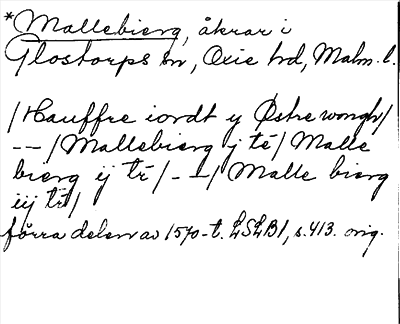 *Mallebierg, åkrar i
Glostorps sn, Oxie hd, Malm. l.
/Hauffre iordt y Østre wongh/
--/Mallebierg j té/Malle
bierg ij tr/--/Malle bierg
iij tr/
förra delen av 1570-t. LSLB1, s.413. orig.